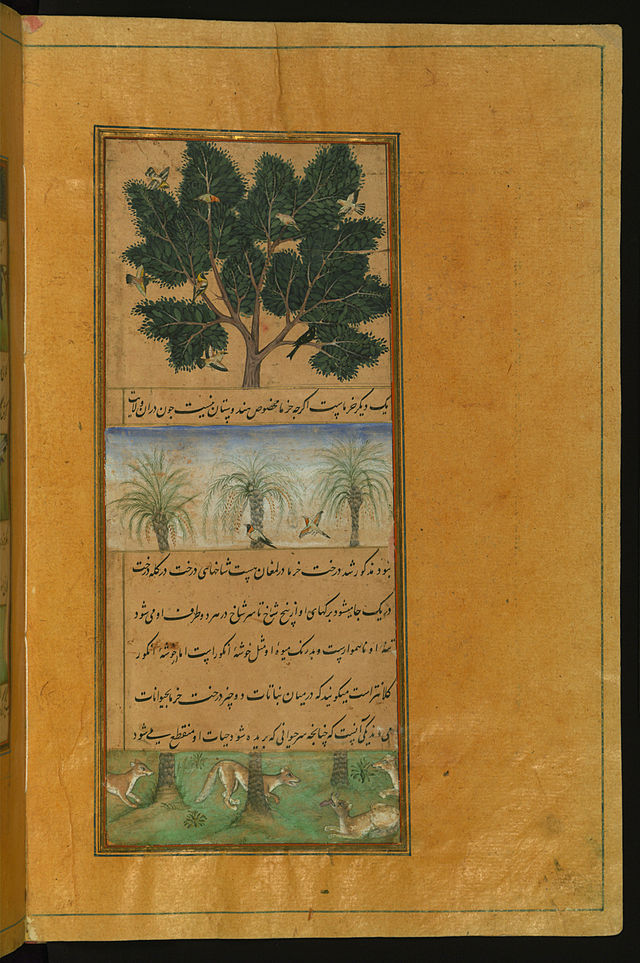 یک دیگر خرماست اگرچه خرما مخصوص هندوستان نیست چون دران ولایت
نبود مذکور شد درخت خرما در لمغان هست شاخهای درخت در کله درخت
در یک جا میشود برگهای او از بیخ شاخ تا سر شاخ در هر دو طرف او می شود
تنهٔ او ناهموارست و بدرنگ میوه او مثل خوشهٔ انگورست اما خوشهٔ انگور
کلانترست میگویند که در میان نباتات دو چیز درخت خرما بحیوانات
می ماند یکی آنست که چنانچه سر حیوانی که بریده شود حیات او منقطع می شود